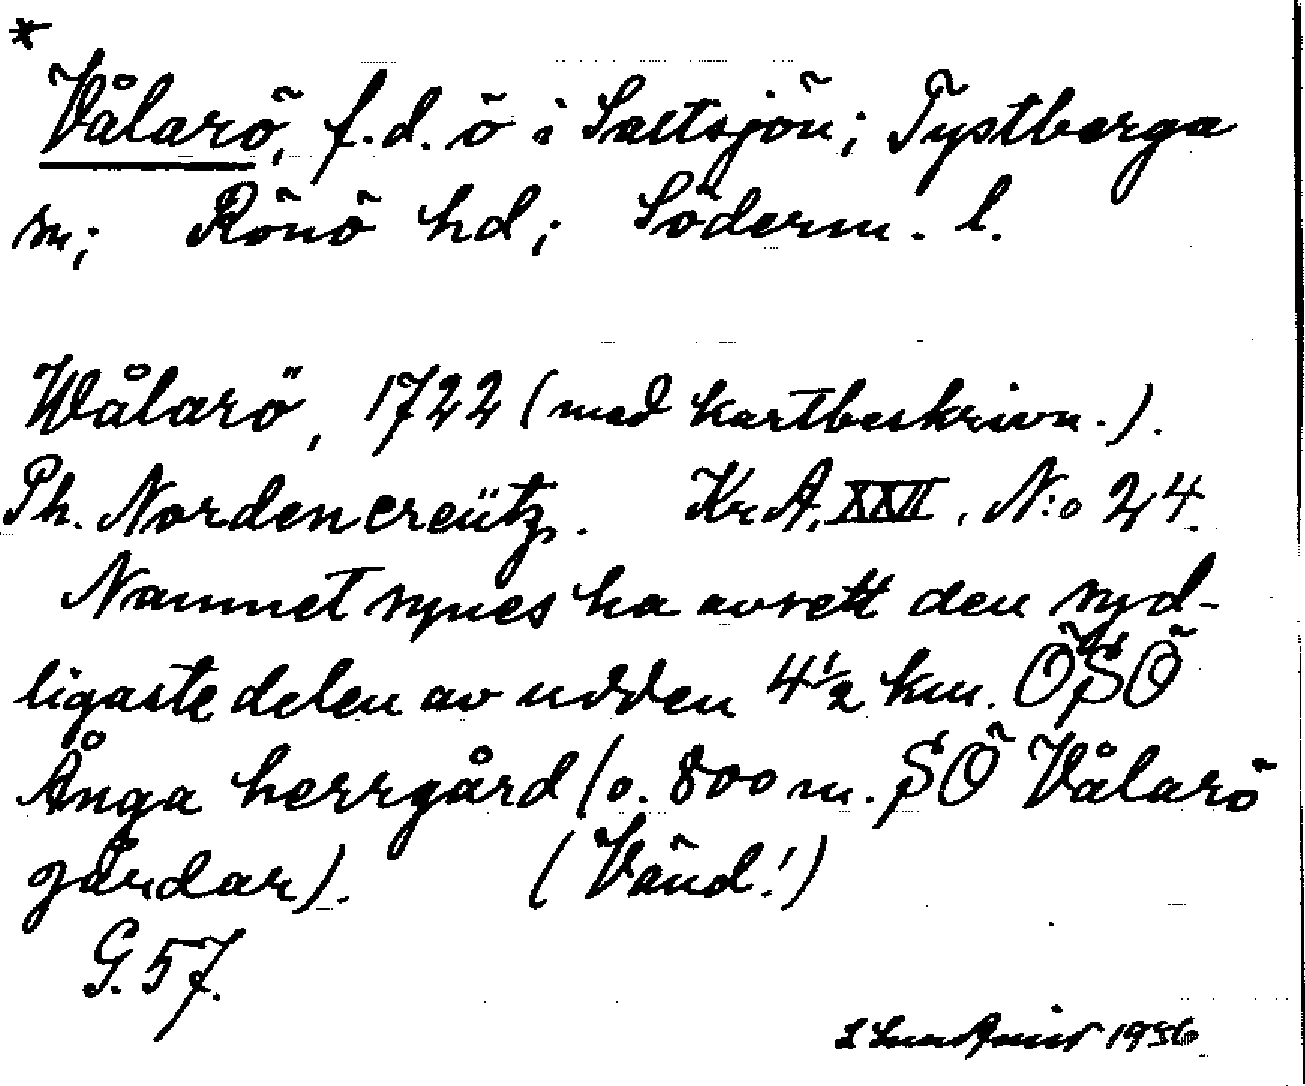 *
Vålarö, f.d. ö i Saltsjön; Tystberga
sn; Rönö hd; Söderm. l.
Wålarö, 1722 (med kartbeskrivn.).
Ph. Nordencreütz. Kr.A. XXII. N:o 24.
Namnet synes ha avsett den syd-
ligaste delen av udden 4 1/2 km. ÖSÖ
Ånga herrgård (o. 800 m. SÖ Vålarö
gårdar). (Vänd!)
G. 57.
1956